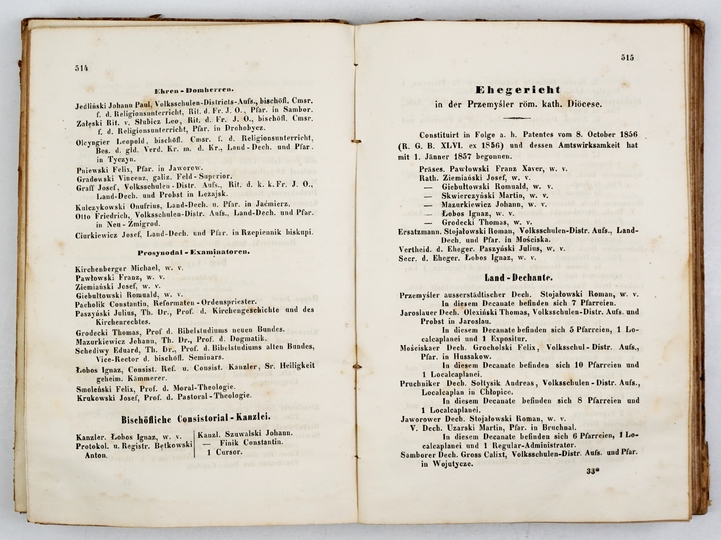 514
Ehren-Domherren.
Jedliński Johann Paul, Volksschulen-Districts-Aufs., bischöfl. Cmsr.
f. d. Religionsunterricht, Rit. d. Fr. J. O., Pfar. in Sambor.
Załęski Rit. v. Słubicz Leo, Rit. d. Fr. J. O., bischöfl. Cmsr.
f. d. Religionsunterricht, Pfar. in Drohobycz.
Olcyngier Leopold, bischöfl. Cmsr. f. d. Religionsunterricht,
Bes. d. gld. Verd. Kr. m. d. Kr., Land-Dech. und Pfar.
in Tyczyn.
Pniewski Felix, Pfar. in Jaworow.
Gradowski Vincenz, galiz. Feld-Superior.
Graff Josef, Volksschulen-Distr. Aufs., Rit. d. k. k. Fr. J. O.,
Land-Dech. und Probst in Leżajsk.
Kulczykowski Onufrius, Land-Dech. u. Pfar. in Jaćmierz.
Otto Friedrich, Volksschulen-Distr. Aufs., Land-Dech. und Pfar.
in Neu-Zmigrod.
Ciurkiewicz Josef, Land-Dech. und Pfar. in Rzepiennik biskupi.
Prosynodal-Examinatoren.
Kirchenberger Michael, w. v.
Pawłowski Franz, w. v.
Ziemiański Josef, w. v.
Giebułtowski Romuald, w. v.
Pacholik Constantin, Reformaten-Ordenspriester.
Paszyński Julius, Th. Dr., Prof. d. Kirchengeschichte und des
Kirchenrechtes.
Grodecki Thomas, Prof d. Bibelstudiums neuen Bundes.
Mazurkiewicz Johann, Th. Dr., Prof. d. Dogmatik.
Schediwy Eduard, Th. Dr., Prof. d. Bibelstudiums alten Bundes,
Vice-Rector d. bischöfl. Seminars.
Łobos Ignaz, Consist. Ref. u. Consist. Kanzler, Sr. Heiligkeit
geheim. Kämmerer.
Smoleński Felix, Prof. d. Moral-Theologie.
Krukowski Josef, Prof. d. Pastoral-Theologie.
Bischöfliche Consistorial-Kanzlei.
Kanzler. Łobos Ignaz, w. v.
Protokol. u. Registr. Bętkowski
Anton.
Kanzl. Szuwalski Johann.
— Finik Constantin.
1 Cursor.
515
Ehegericht
in der Przemyśler röm. kath. Diöcese.
Constituirt in Folge a. h. Patentes vom 8. October 1856
(R. G. B. XLVI. ex 1856) und dessen Amtswirksamkeit hat
mit 1. Jänner 1857 begonnen.
Präses. Pawłowski Franz Xaver, w. v.
Rath. Ziemiański Josef, w. v.
— Giebułtowski Romuald, w. v.
— Skwierczyński Martin, w. v.
— Mazurkiewicz Johann, w. v.
— Łobos Ignaz, w. v.
— Grodecki Thomas, w. v.
Ersatzmann. Stojałowski Roman, Volksschulen-Distr. Aufs., Land-
Dech. und Pfar. in Mościska.
Vertheid. d. Eheger. Paszyński Julius, w. v.
Secr. d. Eheger. Łobos Ignaz, w. v.
Land-Dechante.
Przemyśler ausserstädtischer Dech. Stojałowski Roman, w. v.
In diesem Decanate befinden sich 7 Pfarreien.
Jaroslauer Dech. Olexiński Thomas, Volksschulen-Distr. Aufs. und
Probst in Jaroslau.
In diesem Decanate befinden sich 5 Pfarreien, 1 Lo-
calcaplanei und 1 Expositur.
Mościskaer Dech. Grocholski Felix, Volksschul-Distr. Aufs.,
Pfar. in Hussakow.
In diesem Decanate befinden sich 10 Pfarreien und
1 Localcaplanei.
Pruchniker Dech. Sołtysik Andreas, Volksschulen-Distr. Aufs.,
Localcaplan in Chłopice.
In diesem Decanate befinden sich 8 Pfarreien und
1 Localcaplanei.
Jaworower Dech. Stojałowski Roman, w. v.
V. Dech. Uzarski Martin, Pfar. in Bruchnal.
In diesem Decanate befinden sich 6 Pfarreien, 1 Lo-
calcaplanei und 1 Regular-Administrator.
Samborer Dech. Gross Calixt, Volksschulen-Distr. Aufs. und Pfar.
in Wojutycze.
33*